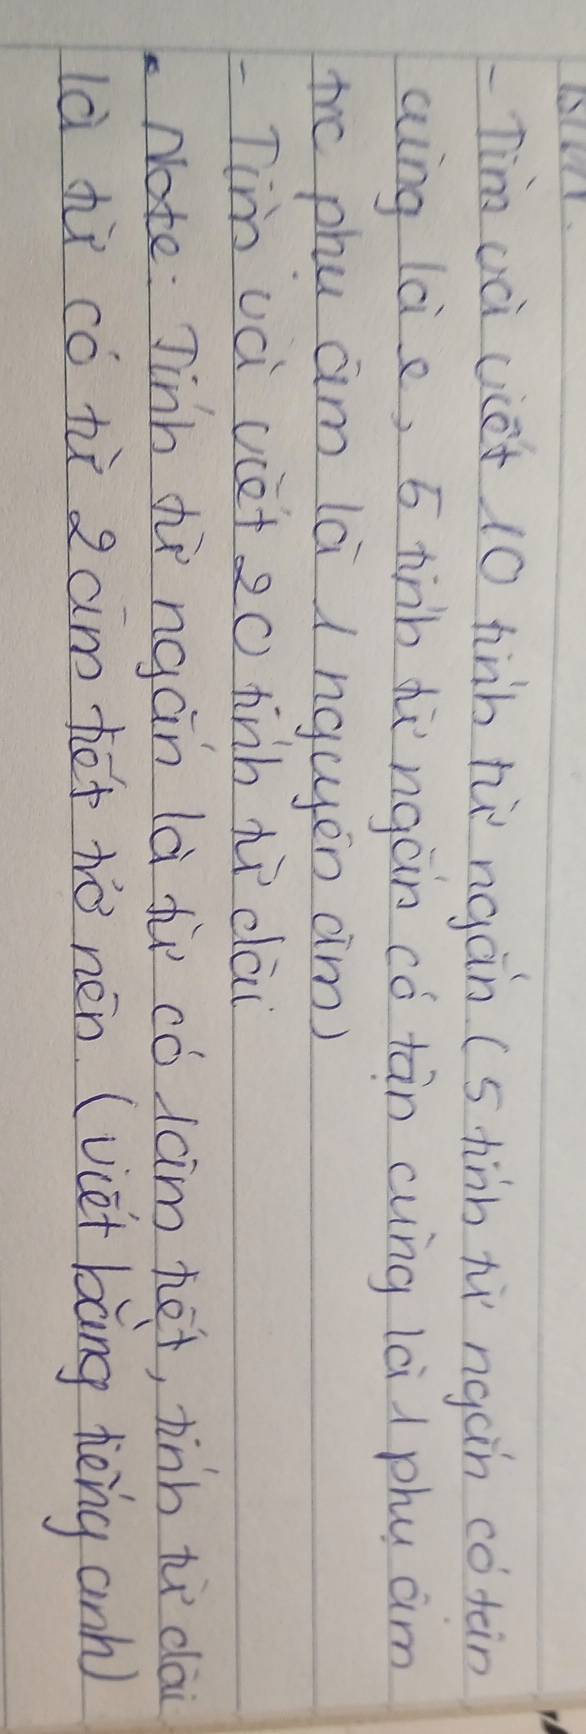 - Tìm và viết 10 tính từ ngắn (5 tính từ ngắn có tận
cùng là e, 5 tính từ ngắn có tận cùng là 1 phụ âm
trc phụ âm là 1 nguyên âm)
- Tìm và viết 20 tính từ dài
• Note: Tính từ ngắn là từ có 1 âm tiết, tính từ dài
là từ có từ 2 âm tiết trở nên. (viết bằng tiếng anh)